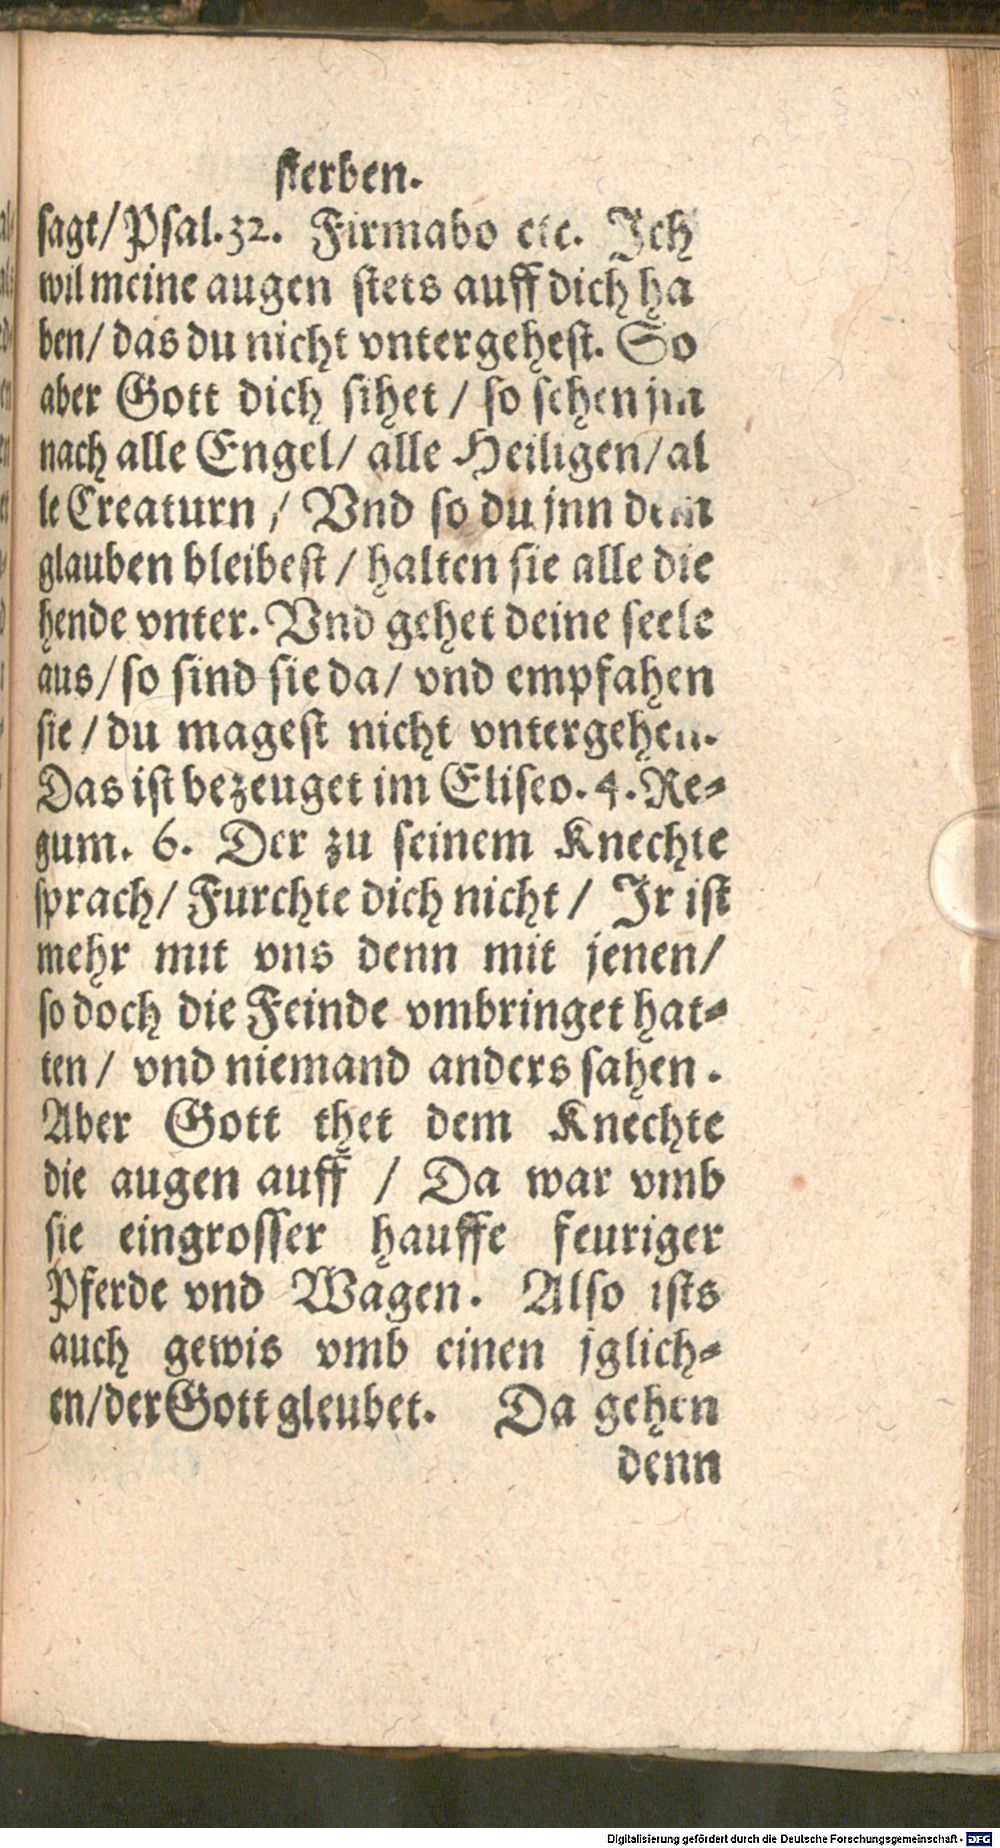 sterben.
sagt/ Psal. 32. Firmabo etc. Ich
wil meine augen stets auff dich ha
ben/ das du nicht vntergehest. So
aber Gott dich sihet / so sehen jm
nach alle Engel/ alle Heiligen/ al
le Creaturn / Vnd so du jnn dem
glauben bleibest / halten sie alle die
hende vnter. Vnd gehet deine seele
aus/ so sind sie da/ vnd empfahen
sie / du magest nicht vntergehen.
Das ist bezeuget im Eliseo. 4. Re-
gum. 6. Der zu seinem Knechte
sprach/ Furchte dich nicht / Jr ist
mehr mit vns denn mit jenen/
so doch die Feinde vmbringet hat-
ten / vnd niemand anders sahen.
Aber Gott thet dem Knechte
die augen auff / Da war vmb
sie eingrosser hauffe feuriger
Pferde vnd Wagen. Also ists
auch gewis vmb einen jglich-
en/ der Gott gleubet. Da gehen
denn
Digitalisierung gefördert durch die Deutsche Forschungsgemeinschaft - DFG